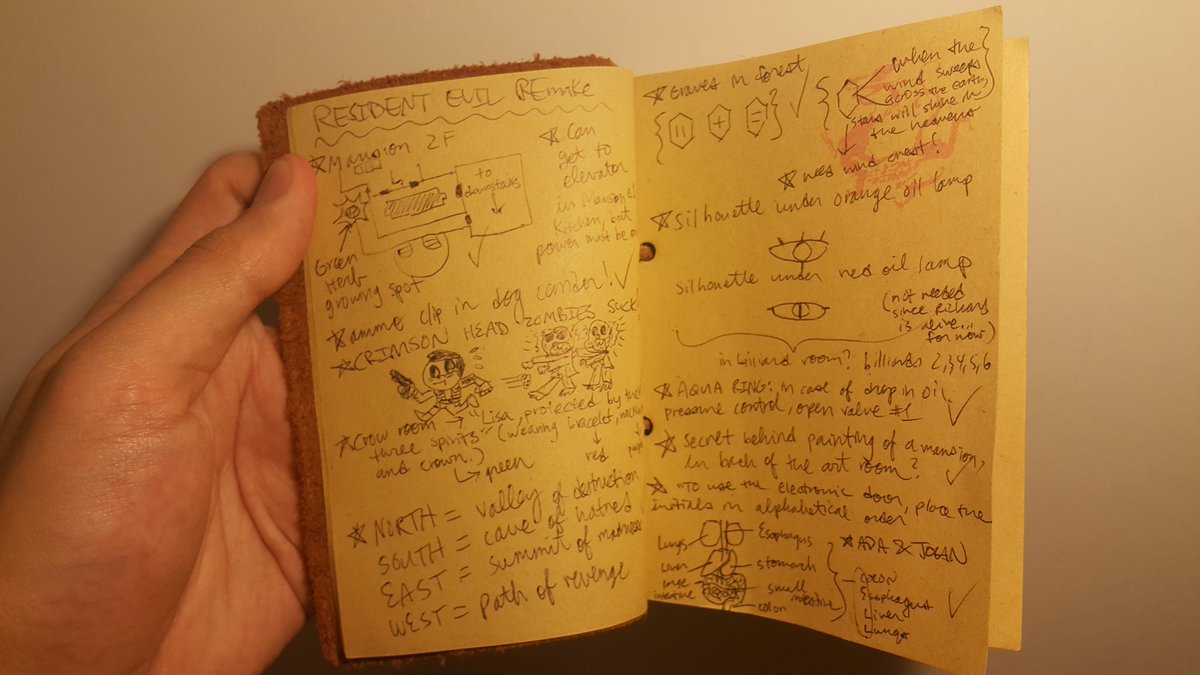 RESIDENT EVIL REmake
★Mansion 2F
to
downstairs
↓
Green
Herb
growing spot
★ Can
get to
elevator
in Mansion B1
Kitchen, but
power must be
★ammo clip in dog corridor! ✓
★CRIMSON HEAD ZOMBIES SUCK
★Crow room → "Lisa, protected by the
three spirits" (wearing bracelet,
and crown.)
↳ green
↓
red
★NORTH = valley of destruction
SOUTH = cave of hatred
EAST = summit of madness
WEST = path of revenge
★ Graves in forest ✓
when the
wind sweeps
across the earth,
stars will shine in
the heavens
★ need wind crest!
★ Silhouette under orange oil lamp
silhouette under red oil lamp
(not needed
since Richard
is alive...
for now)
in billiard room? billiards 2,3,4,5,6
★ AQUA RING: in case of drop in oil
pressure control, open valve #1 ✓
★ secret behind painting of a mansion,
in back of the art room? ✓
★ "To use the electronic door, place the
initials in alphabetical order
Lungs
Esophagus
Liver
stomach
large
intestine
small
intestine
colon
★ ADA & JOHN
Colon
Esophagus
Liver
Lungs
✓